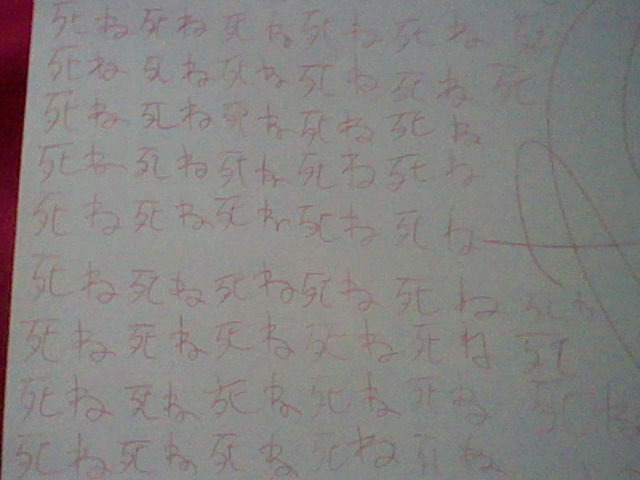 死ね死ね死ね死ね死ね死
死ね死ね死ね死ね死ね死
死ね死ね死ね死ね死ね
死ね死ね死ね死ね死ね
死ね死ね死ね死ね死ね
死ね死ね死ね死ね死ね死ね
死ね死ね死ね死ね死ね死
死ね死ね死ね死ね死ね死ね
死ね死ね死ね死ね死ね